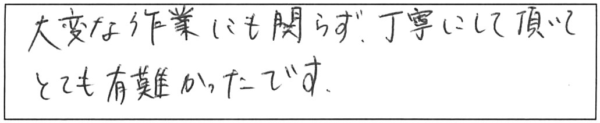 大変な作業にも関らず、丁寧にして頂いて
とても有難かったです。